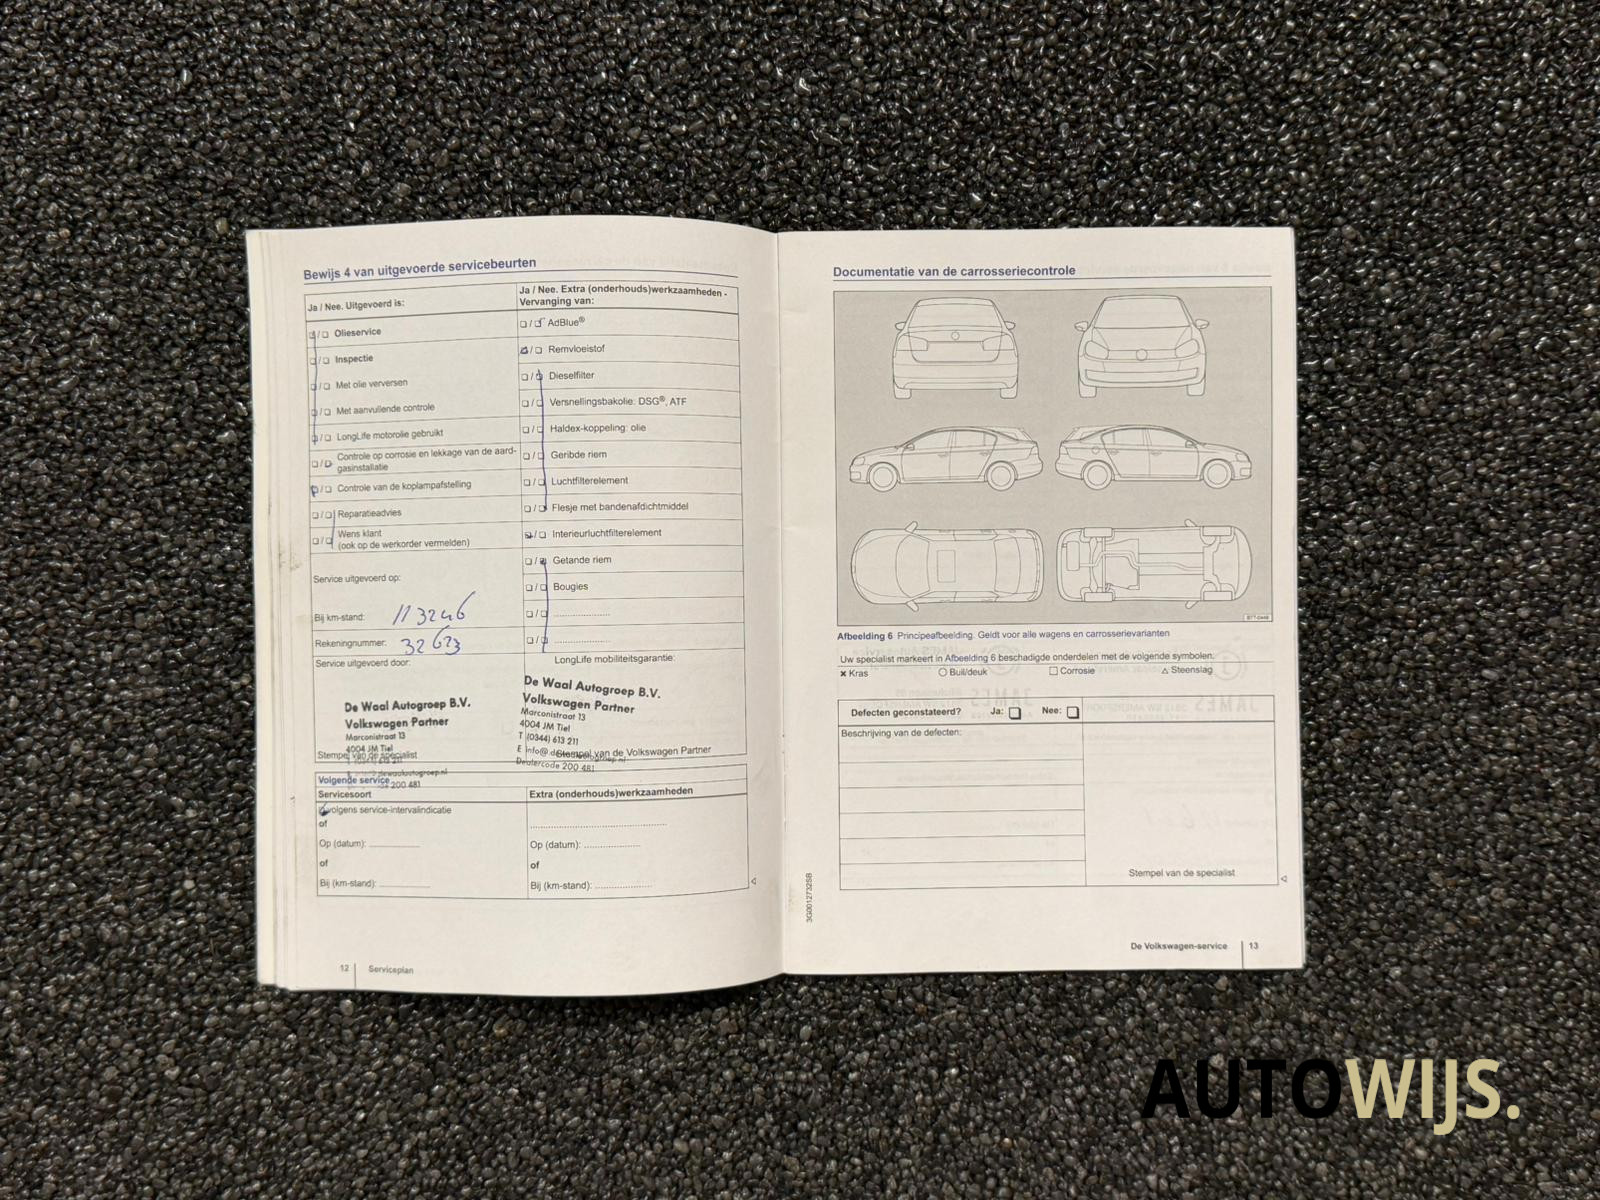 Bewijs 4 van uitgevoerde servicebeurten
Ja / Nee. Uitgevoerd is:
Olieservice
Inspectie
Met olie verversen
Met aanvullende controle
LongLife motorolie gebruikt
Controle op corrosie en lekkage van de aard-
gasinstallatie
Controle van de koplampafstelling
Reparatieadvies
Wens klant
(ook op de werkorder vermelden)
Service uitgevoerd op:
Bij km-stand: 113246
Rekeningnummer: 32623
Service uitgevoerd door:
De Waal Autogroep B.V.
Volkswagen Partner
Marconistraat 13
4004 JM Tiel
Stempel van de specialist
200 481
Ja / Nee. Extra (onderhouds)werkzaamheden -
Vervanging van:
AdBlue®
Remvloeistof
Dieselfilter
Versnellingsbakolie: DSG®, ATF
Haldex-koppeling: olie
Geribde riem
Luchtfilterelement
Flesje met bandenafdichtmiddel
Interieurluchtfilterelement
Getande riem
Bougies
LongLife mobiliteitsgarantie:
De Waal Autogroep B.V.
Volkswagen Partner
Marconistraat 13
4004 JM Tiel
T (0344) 613 211
Stempel van de Volkswagen Partner
Dealercode 200 481
Volgende service
Servicesoort
volgens service-intervalindicatie
of
Op (datum):
of
Bij (km-stand):
Extra (onderhouds)werkzaamheden
Op (datum):
of
Bij (km-stand):
12 Serviceplan
Documentatie van de carrosseriecontrole
Afbeelding 6 Principeafbeelding. Geldt voor alle wagens en carrosserievarianten
Uw specialist markeert in Afbeelding 6 beschadigde onderdelen met de volgende symbolen:
Kras Buil/deuk Corrosie Steenslag
Defecten geconstateerd? Ja: Nee:
Beschrijving van de defecten:
Stempel van de specialist
3G0012732SB
De Volkswagen-service 13
AUTOWIJS.